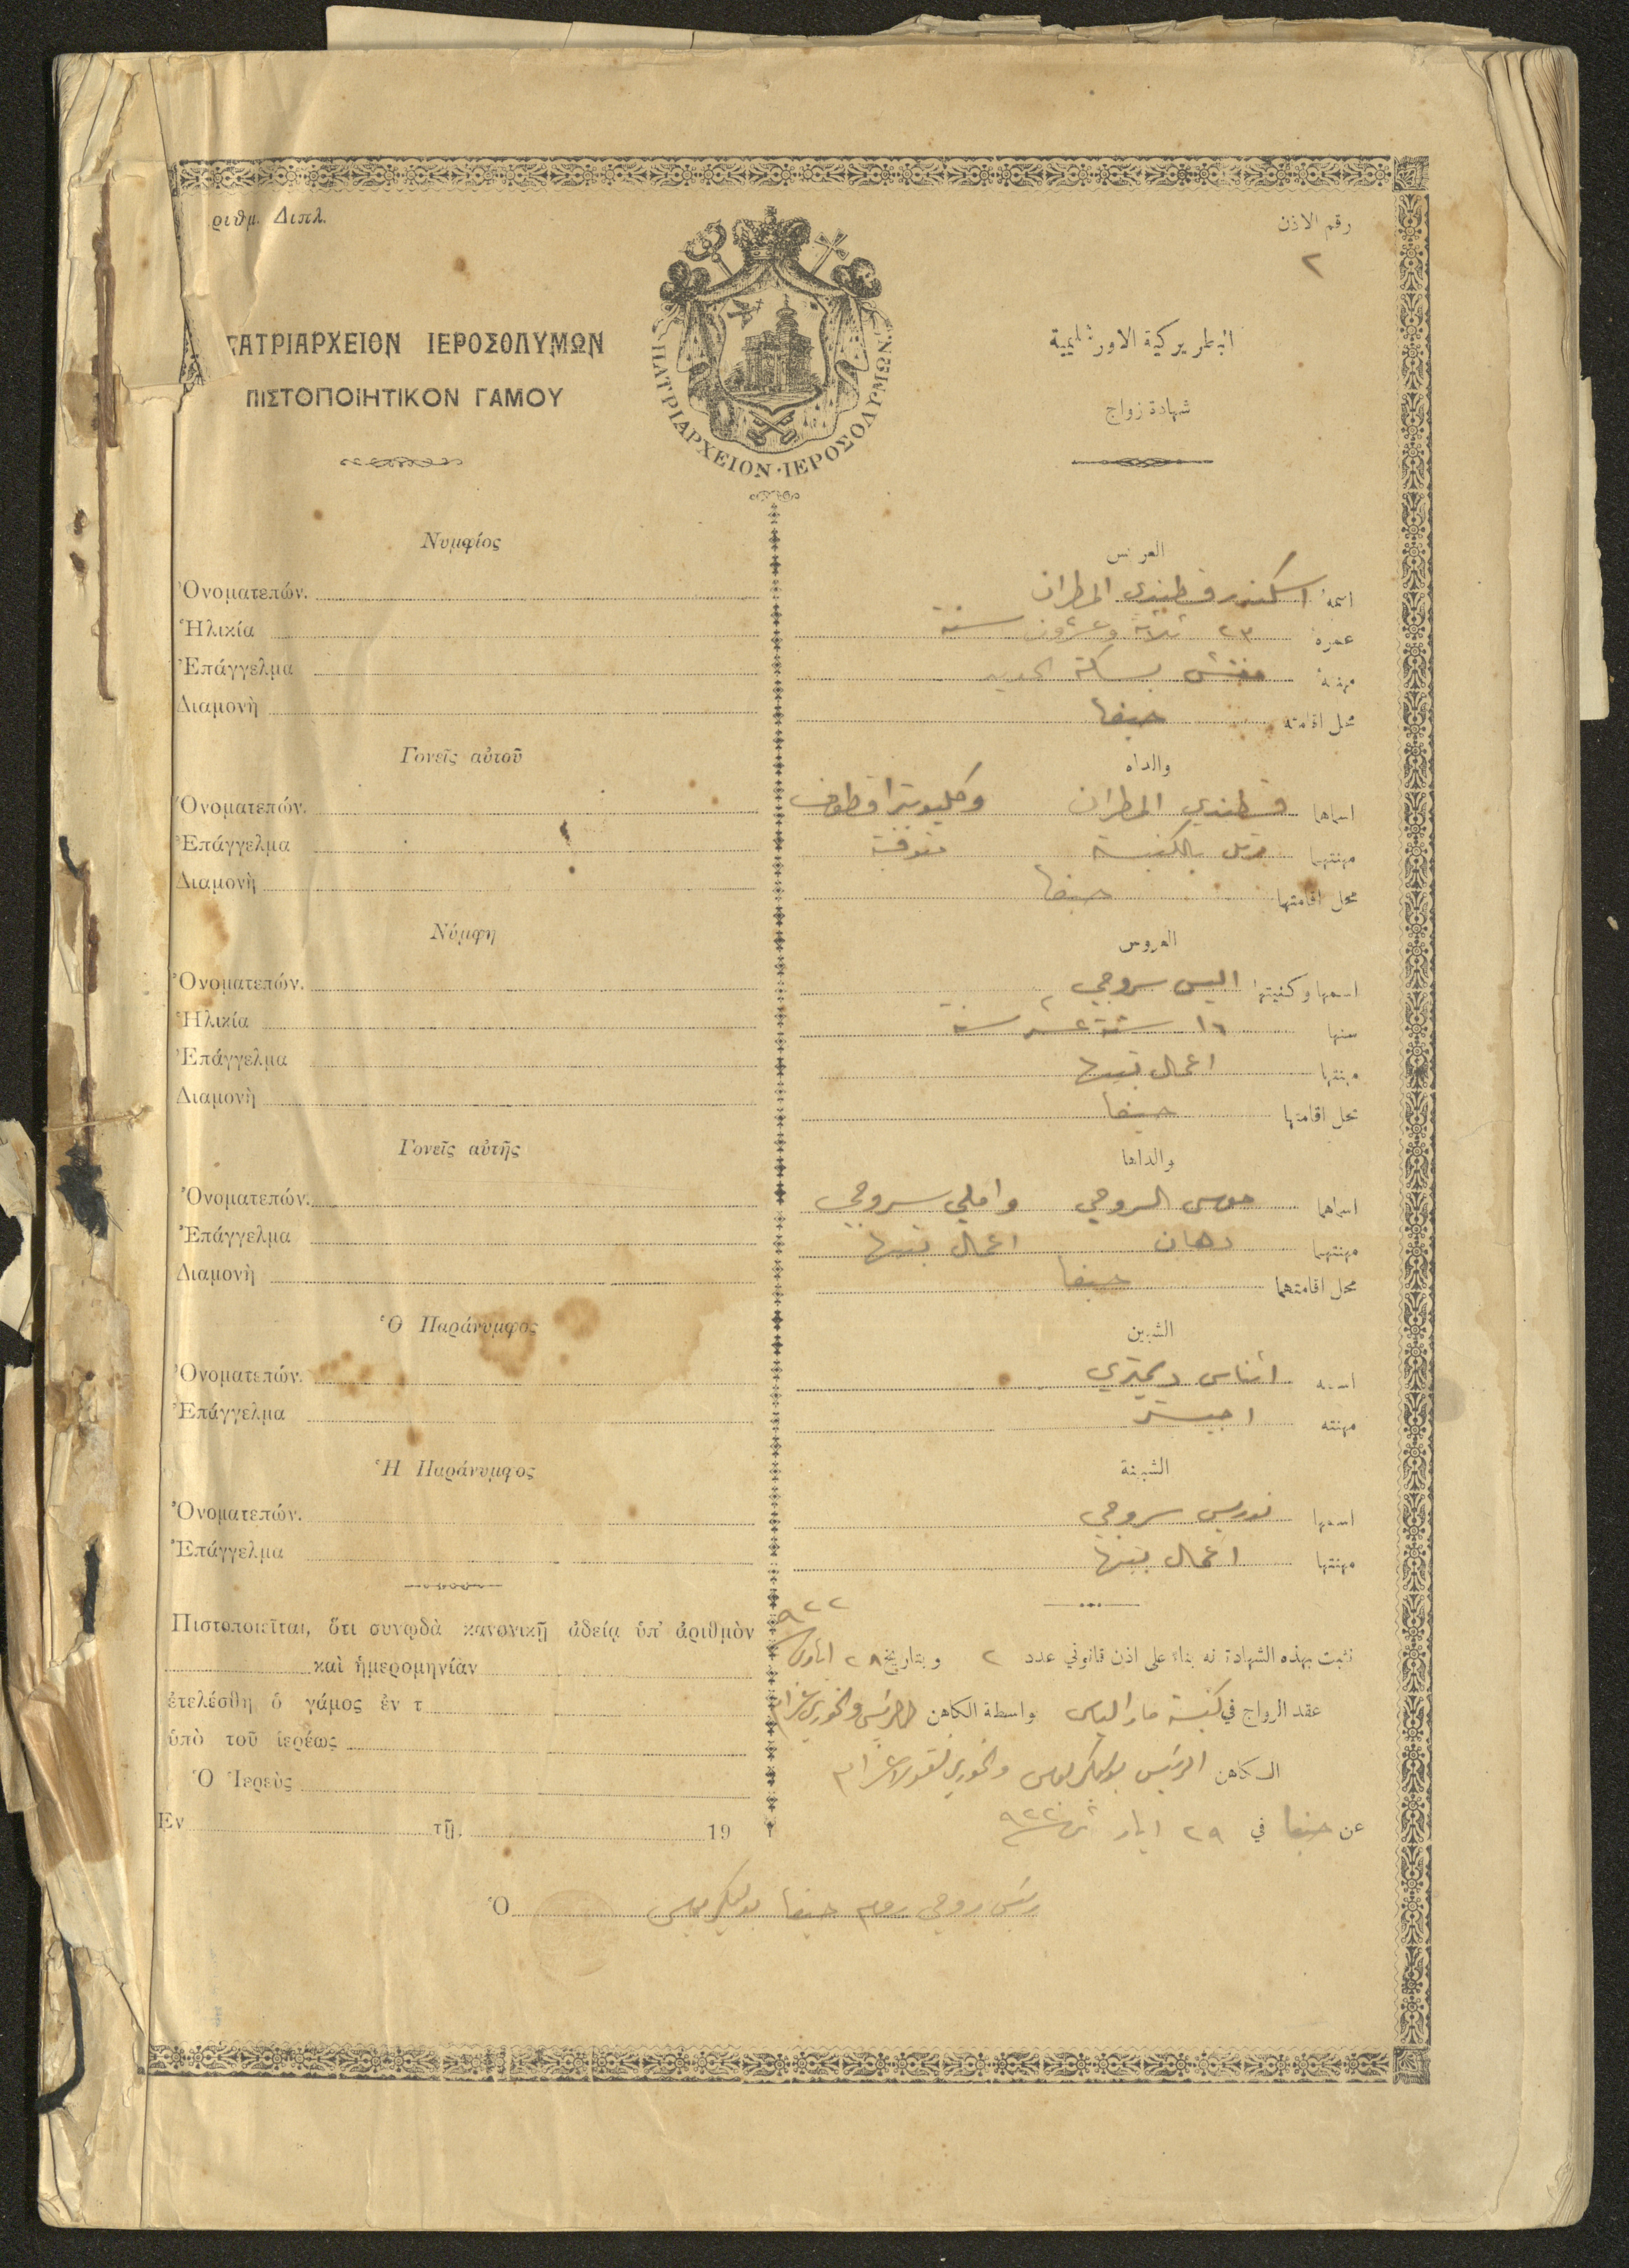 ριθμ. Διπλ.
رقم الاذن
٢
ΠΑΤΡΙΑΡΧΕΙΟΝ ΙΕΡΟΣΟΛΥΜΩΝ
ΠΙΣΤΟΠΟΙΗΤΙΚΟΝ ΓΑΜΟΥ
ΠΑΤΡΙΑΡΧΕΙΟΝ·ΙΕΡΟΣΟΛΥΜΩΝ
البطريركية الاورشليمية
شهادة زواج
Νυμφίος
Ὀνοματεπών.
Ἡλικία
Ἐπάγγελμα
Διαμονὴ
Γονεῖς αὐτοῦ
Ὀνοματεπών.
Ἐπάγγελμα
Διαμονὴ
Νύμφη
Ὀνοματεπών.
Ἡλικία
Ἐπάγγελμα
Διαμονὴ
Γονεῖς αὐτῆς
Ὀνοματεπών.
Ἐπάγγελμα
Διαμονὴ
Ὁ Παράνυμφος
Ὀνοματεπών.
Ἐπάγγελμα
Ἡ Παράνυμφος
Ὀνοματεπών.
Ἐπάγγελμα
Πιστοποιεῖται, ὅτι συνῳδὰ κανονικῇ ἀδείᾳ ὑπ' ἀριθμὸν
καὶ ἡμερομηνίαν
ἐτελέσθη ὁ γάμος ἐν τ
ὑπὸ τοῦ ἱερέως
Ὁ Ἱερεὺς
Εν τῇ. 19
العريس
اسمه اسكندر قسطندي المطران
عمره ٢٣ ثلاثة وعشرون سنة
مهنته مفتش بسكة الحديد
محل اقامته حيفا
والداه
اسماهما قسطندي المطران وكليوبترا قطوف
مهنتهما مرتل بالكنيسة متوفية
محل اقامتهما حيفا
العروس
اسمها وكنيتها اليس سروجي
سنها ١٦ ستة عشر سنة
مهنتها اعمال بيتها
محل اقامتها حيفا
والداها
اسماهما موسى السروجي واملي سروجي
مهنتهما دهان اعمال بيتها
محل اقامتهما حيفا
الشبين
اسمه اثناس ديمتري
مهنته
الشبينة
اسمها لوريس سروجي
مهنتها اعمال بيتها
نثبت بهذه الشهادة انه بناء على اذن قانوني عدد ٢ وبتاريخ ٢٨ ايار ٩٢٢
عقد الزواج في كنيسة مار الياس بواسطة الكاهن الرئيس والخوري
الكاهن الرئيس والخوري نقولا
عن حيفا في ٢٩ ايار ٩٢٢
Ὁ رئيس روحي روم حيفا